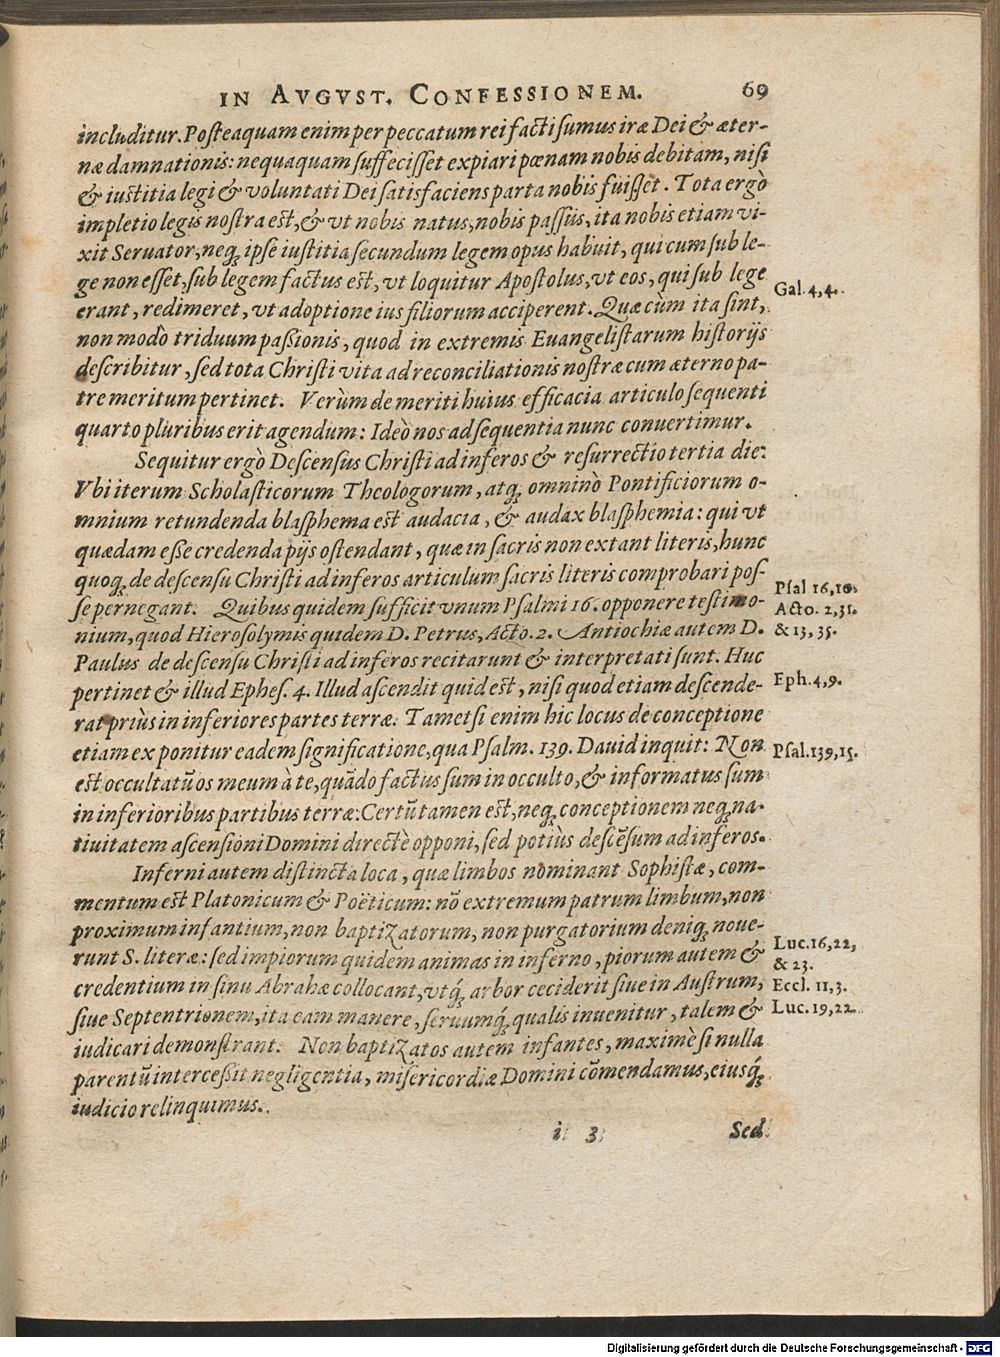 IN AVGVST. CONFESSIONEM. 69
includitur. Posteaquam enim per peccatum rei facti sumus iræ Dei & æter-
næ damnationis: nequaquam suffecisset expiari pœnam nobis debitam, nisi
& iustitia legi & voluntati Dei satisfaciens parta nobis fuisset. Tota ergò
impletio legis nostra est, & vt nobis natus, nobis passus, ita nobis etiam vi-
xit Seruator, neq; ipse iustitia secundum legem opus habuit, qui cum sub le-
ge non esset, sub legem factus est, vt loquitur Apostolus, vt eos, qui sub lege
Gal. 4, 4.
erant, redimeret, vt adoptione ius filiorum acciperent. Quæ cùm ita sint,
non modò triduum passionis, quod in extremis Euangelistarum historijs
describitur, sed tota Christi vita ad reconciliationis nostræ cum æterno pa-
tre meritum pertinet. Verùm de meriti huius efficacia articulo sequenti
quarto pluribus erit agendum: Ideò nos ad sequentia nunc conuertimur.
Sequitur ergò Descensus Christi ad inferos & resurrectio tertia die:
Vbi iterum Scholasticorum Theologorum, atq; omninò Pontificiorum o-
mnium retundenda blasphema est audacia, & audax blasphemia: qui vt
quædam esse credenda pijs ostendant, quæ in sacris non extant literis, hunc
quoq; de descensu Christi ad inferos articulum sacris literis comprobari pos-
se pernegant. Quibus quidem sufficit vnum Psalmi 16. opponere testimo-
Psal 16, 10.
Acto. 2, 31.
& 13, 35.
nium, quod Hierosolymis quidem D. Petrus, Acto. 2. Antiochiæ autem D.
Paulus de descensu Christi ad inferos recitarunt & interpretati sunt. Huc
pertinet & illud Ephes. 4. Illud ascendit quid est, nisi quod etiam descende-
Eph. 4, 9.
rat priùs in inferiores partes terræ. Tametsi enim hic locus de conceptione
etiam exponitur eadem significatione, qua Psalm. 139. Dauid inquit: Non
Psal. 139, 15.
est occultatũ os meum à te, quãdo factus sum in occulto, & informatus sum
in inferioribus partibus terræ: Certũ tamen est, neq; conceptionem neq; na-
tiuitatem ascensioni Domini directè opponi, sed potiùs descẽsum ad inferos.
Inferni autem distincta loca, quæ limbos nominant Sophistæ, com-
mentum est Platonicum & Poëticum: nõ extremum patrum limbum, non
proximum infantium, non baptizatorum, non purgatorium deniq; noue-
runt S. literæ: sed impiorum quidem animas in inferno, piorum autem &
Luc. 16, 22,
& 23.
credentium in sinu Abrahæ collocant, vtq́; arbor ceciderit siue in Austrum,
Eccl. 11, 3.
siue Septentrionem, ita eam manere, seruumq́; qualis inuenitur, talem &
Luc. 19, 22.
iudicari demonstrant. Non baptizatos autem infantes, maximè si nulla
parentũ intercessit negligentia, misericordiæ Domini cõmendamus, eiusq́;
iudicio relinquimus.
i 3 Sed